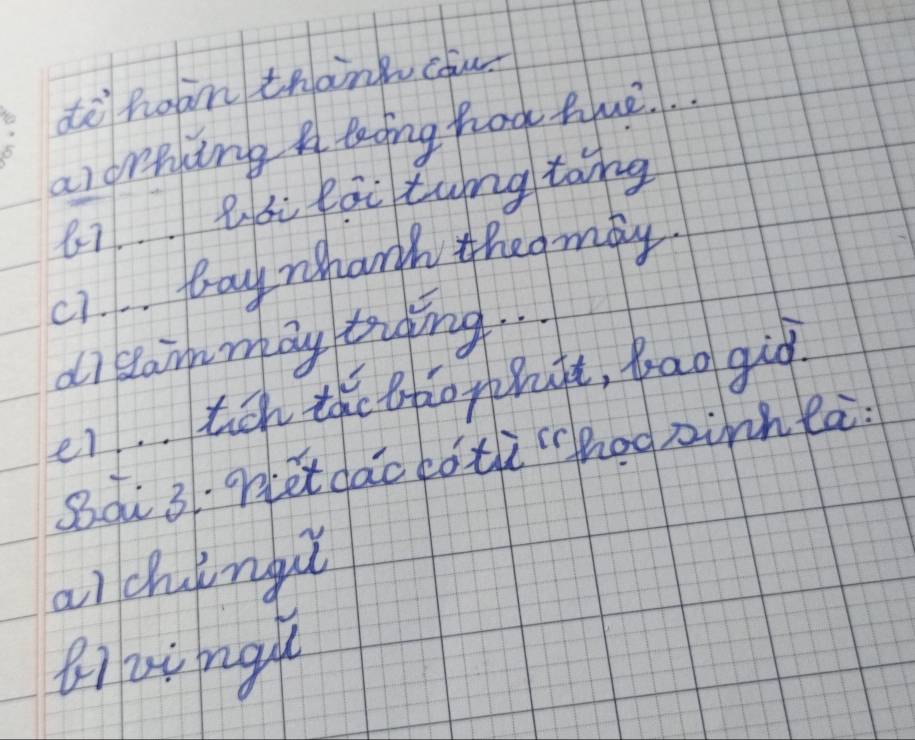 để hoàn thành câu.
a) Những bông hoa huệ...
b).... bơi lội tung tăng
c).... bay nhanh theo mây.
d) Đám mây trắng...
e).... tích tắc báo phút, bao giờ.
Bài 3: Viết các có từ "học sinh là:
a) chủ ngữ
b) vị ngữ